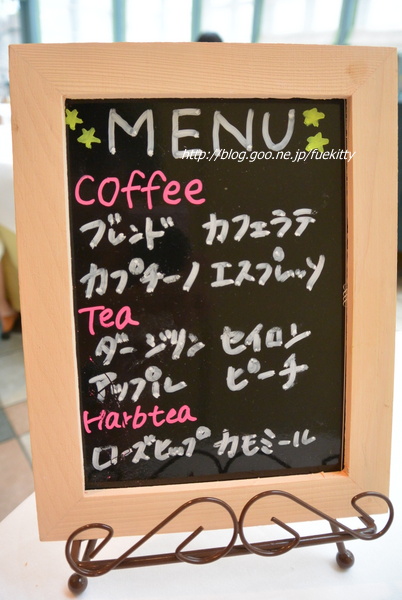 MENU
http://blog.goo.ne.jp/fuekitty
Coffee
ブレンド カフェラテ
カプチーノ エスプレッソ
Tea
ダージリン セイロン
アップル ピーチ
Harbtea
ローズヒップ カモミール